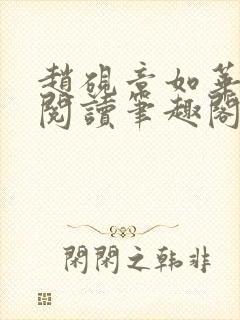 趙硯章如華
閱讀筆趣閣
閑閑之韩非